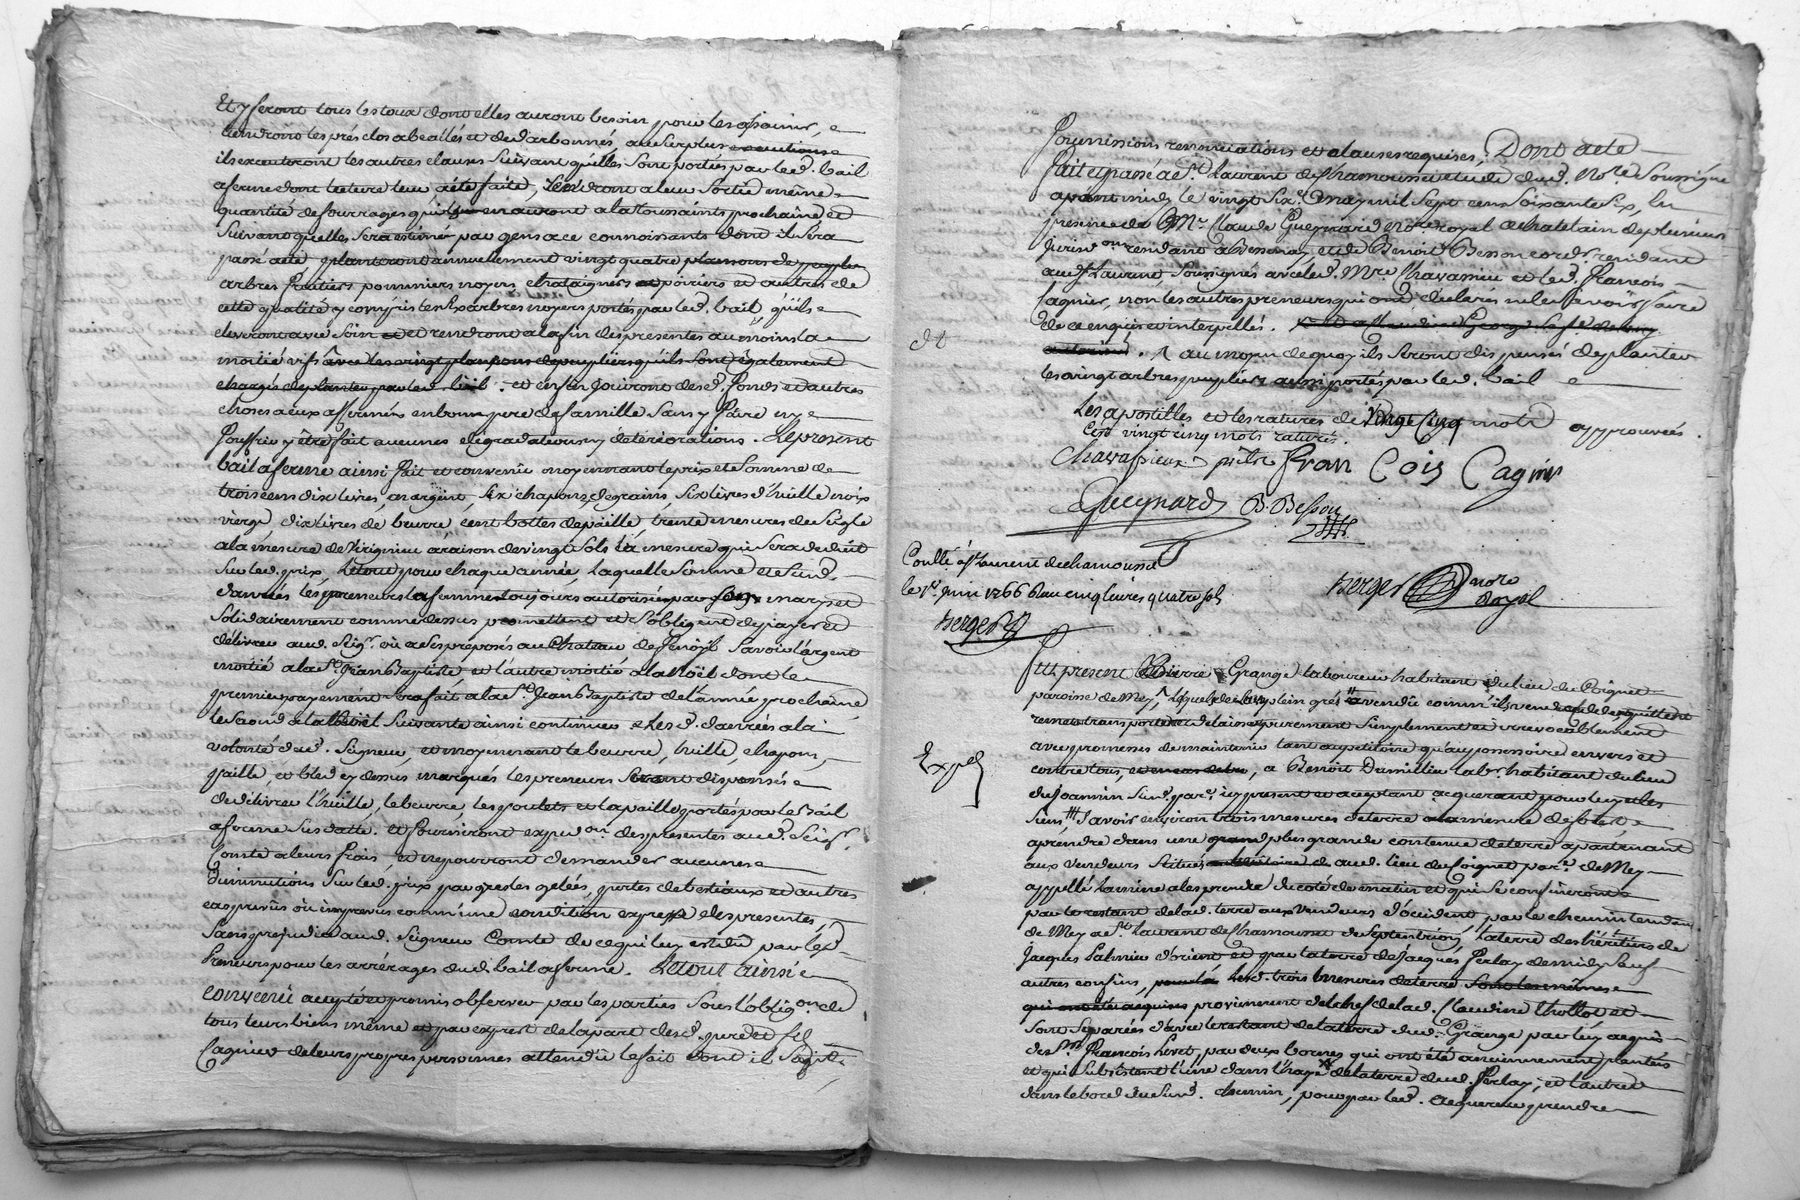 Et y feront tous les toux dont elles auront besoin pour les
tiendront les prés clos abeallés et dedarbonnés, au surplus
ils executeront les autres clauses suivant qu'elles sont portées par led. bail
a ferme dont lecture leur a été faite, rendront a leur sortie même
quantité de fourrages qu'ils en auront a la toussaints prochaine et
suivant quelles sera estimée par gens a ce connoissants dont il sera
passé acte planteront annuellement vingt quatre plansons de peuplier
arbres fruitiers pommiers noyers chataigners et poiriers et autres de
cette qualité y compris les arbres noyers portés par led. bail, qu'ils
eleveront avec soin et rendront a la fin des presentes au moins la
moitié vifs avec les vingt plansons de peupliers qu'ils sont également
chargés de planter par led. bail. et enfin jouiront desd. fonds et autres
choses a eux affermées en bon pere de famille sans y faire ny
souffrir y être fait aucunes dégradations ny déteriorations. Le present
bail a ferme ainsi fait et convenu moyennant le prix et somme de
trois cens dix livres, en argent, six chapons de grains, six livres d'huille noix
vierge dix livres de beurre, cent bottes de paille, trente mesures de seigle
a la mesure de a raison de vingt sols la mesure qui sera deduit
sur led. prix le tout pour chaque année, laquelle somme et susd.
danrées les preneurs les femmes toujours autorisées par marys et
solidairement comme dessus promettent et s'obligent de payer et
délivrer aud. seigr. ou a ses preposés au Chateau de savoir l'argent
moitié a la St. Jean Baptiste, et l'autre moitié a la Noël dont le
premier payement sera fait a la St. Jean Baptiste de l'année prochaine,
le second a la Noël suivante ainsi continuer & lesd. danrées a la
volonté dud. seigneur, et moyennant le beurre, huille, chapons,
paille, et bled cy dessus marqués les preneurs seront dispensés
de délivrer l'huille, le beurre, les poulets et la paille portés par le bail
a ferme susdatté. et fourniront expedon. des presentes aud. seigr.
Comte a leurs frais, et ne pourront demander aucunes
diminutions sur led. prix par gresles gelées, pertes de bestiaux et autres
cas prevus ou imprevus comm'une condition expresse des presentes,
sans prejudice aud. seigneur Comte de ce qui luy est dû par les
preneurs pour les arrérages dud. bail a ferme. Le tout ainsi
convenu accepté et promis observer par les parties sous l'obligon. de
tous leurs biens même et par exprest de la part desd. pere et fils
Cagnieu de leurs propres personnes attendu le fait dont il s'agit
soumissions renonciations et clauses requises, Dont acte
fait et passé a St. Laurent de Chamousset etude dud. Nore. soussigné
avant midy le vingt six may mil sept cens soixante six, en
presence de Mr. Claude Gueynard nore. royal et chatelain de plusieurs
jurisons. residant a Bessenay, et de Benoit Besson cordr. residant
aud. St. Laurent, soussignés avec led. Mre. Chavassieu et led. François
Cagnieu, non les autres preneurs qui ont declarés ne le savoir faire
de ce enquis et interpellés.
et
au moyen de quoy ils seront dispensés de planter
les vingt arbres peupliers aussi portés par led. bail
Les apostilles et les ratures de vingt cinq mots approuvées.
C'est vingt cinq mots raturés.
Chavassieux prêtre Fran Cois Cagnieu
Gueynard B. Besson
Conllé. a St. Laurent de chamousset
le 1er. juin 1766 Reçu cinq livres quatre sols
Berger
Berger nore royal
Fut present Pierre Grange laboureur habitant du lieu du Coignet
paroisse de Mey, lequel de leur plein gré a vendu comm'ils vendent cedde quittent
remet transporte et delaisse purement simplement et irrevocablement
avec promesses de maintenir tant au petitoire qu'au possessoire envers et
contre tous, a Benoit Dumillieu labr. habitant du lieu
du Joannin susd. parse. icy present et acceptant acquerant pour luy et les
siens, savoir environ trois mesures de terre a la mesure de forest
a prendre dans une plus grande contenue de terre apartenant
aux vendeurs située aud. lieu du Coignet parse. de Mey
appellé la mine a les prendre du coté de matin et qui se confineront
par le restant de lad. terre aux vendeurs d'occident par le chemin tendant
de Mey a St. Laurent de Chamousset de septentrion, la terre des héritiers de
Jacques Salmieu d'orient et par la terre de Jacques Perlay de midy sauf
autres confins, lesd. trois mesures de terre
qui proviennent du chef de lad. Claudine Thollot et
sont separées d'avec le restant de la terre dud. Grange par luy acquis
de Sr. François Leret, par deux bornes qui ont été anciennement plantées
et qui subsistent l'une dans l'haye de la terre dud. Perlay, et l'autre
dans le bord du susd. chemin, pour par led. acquereur prendre
Exped